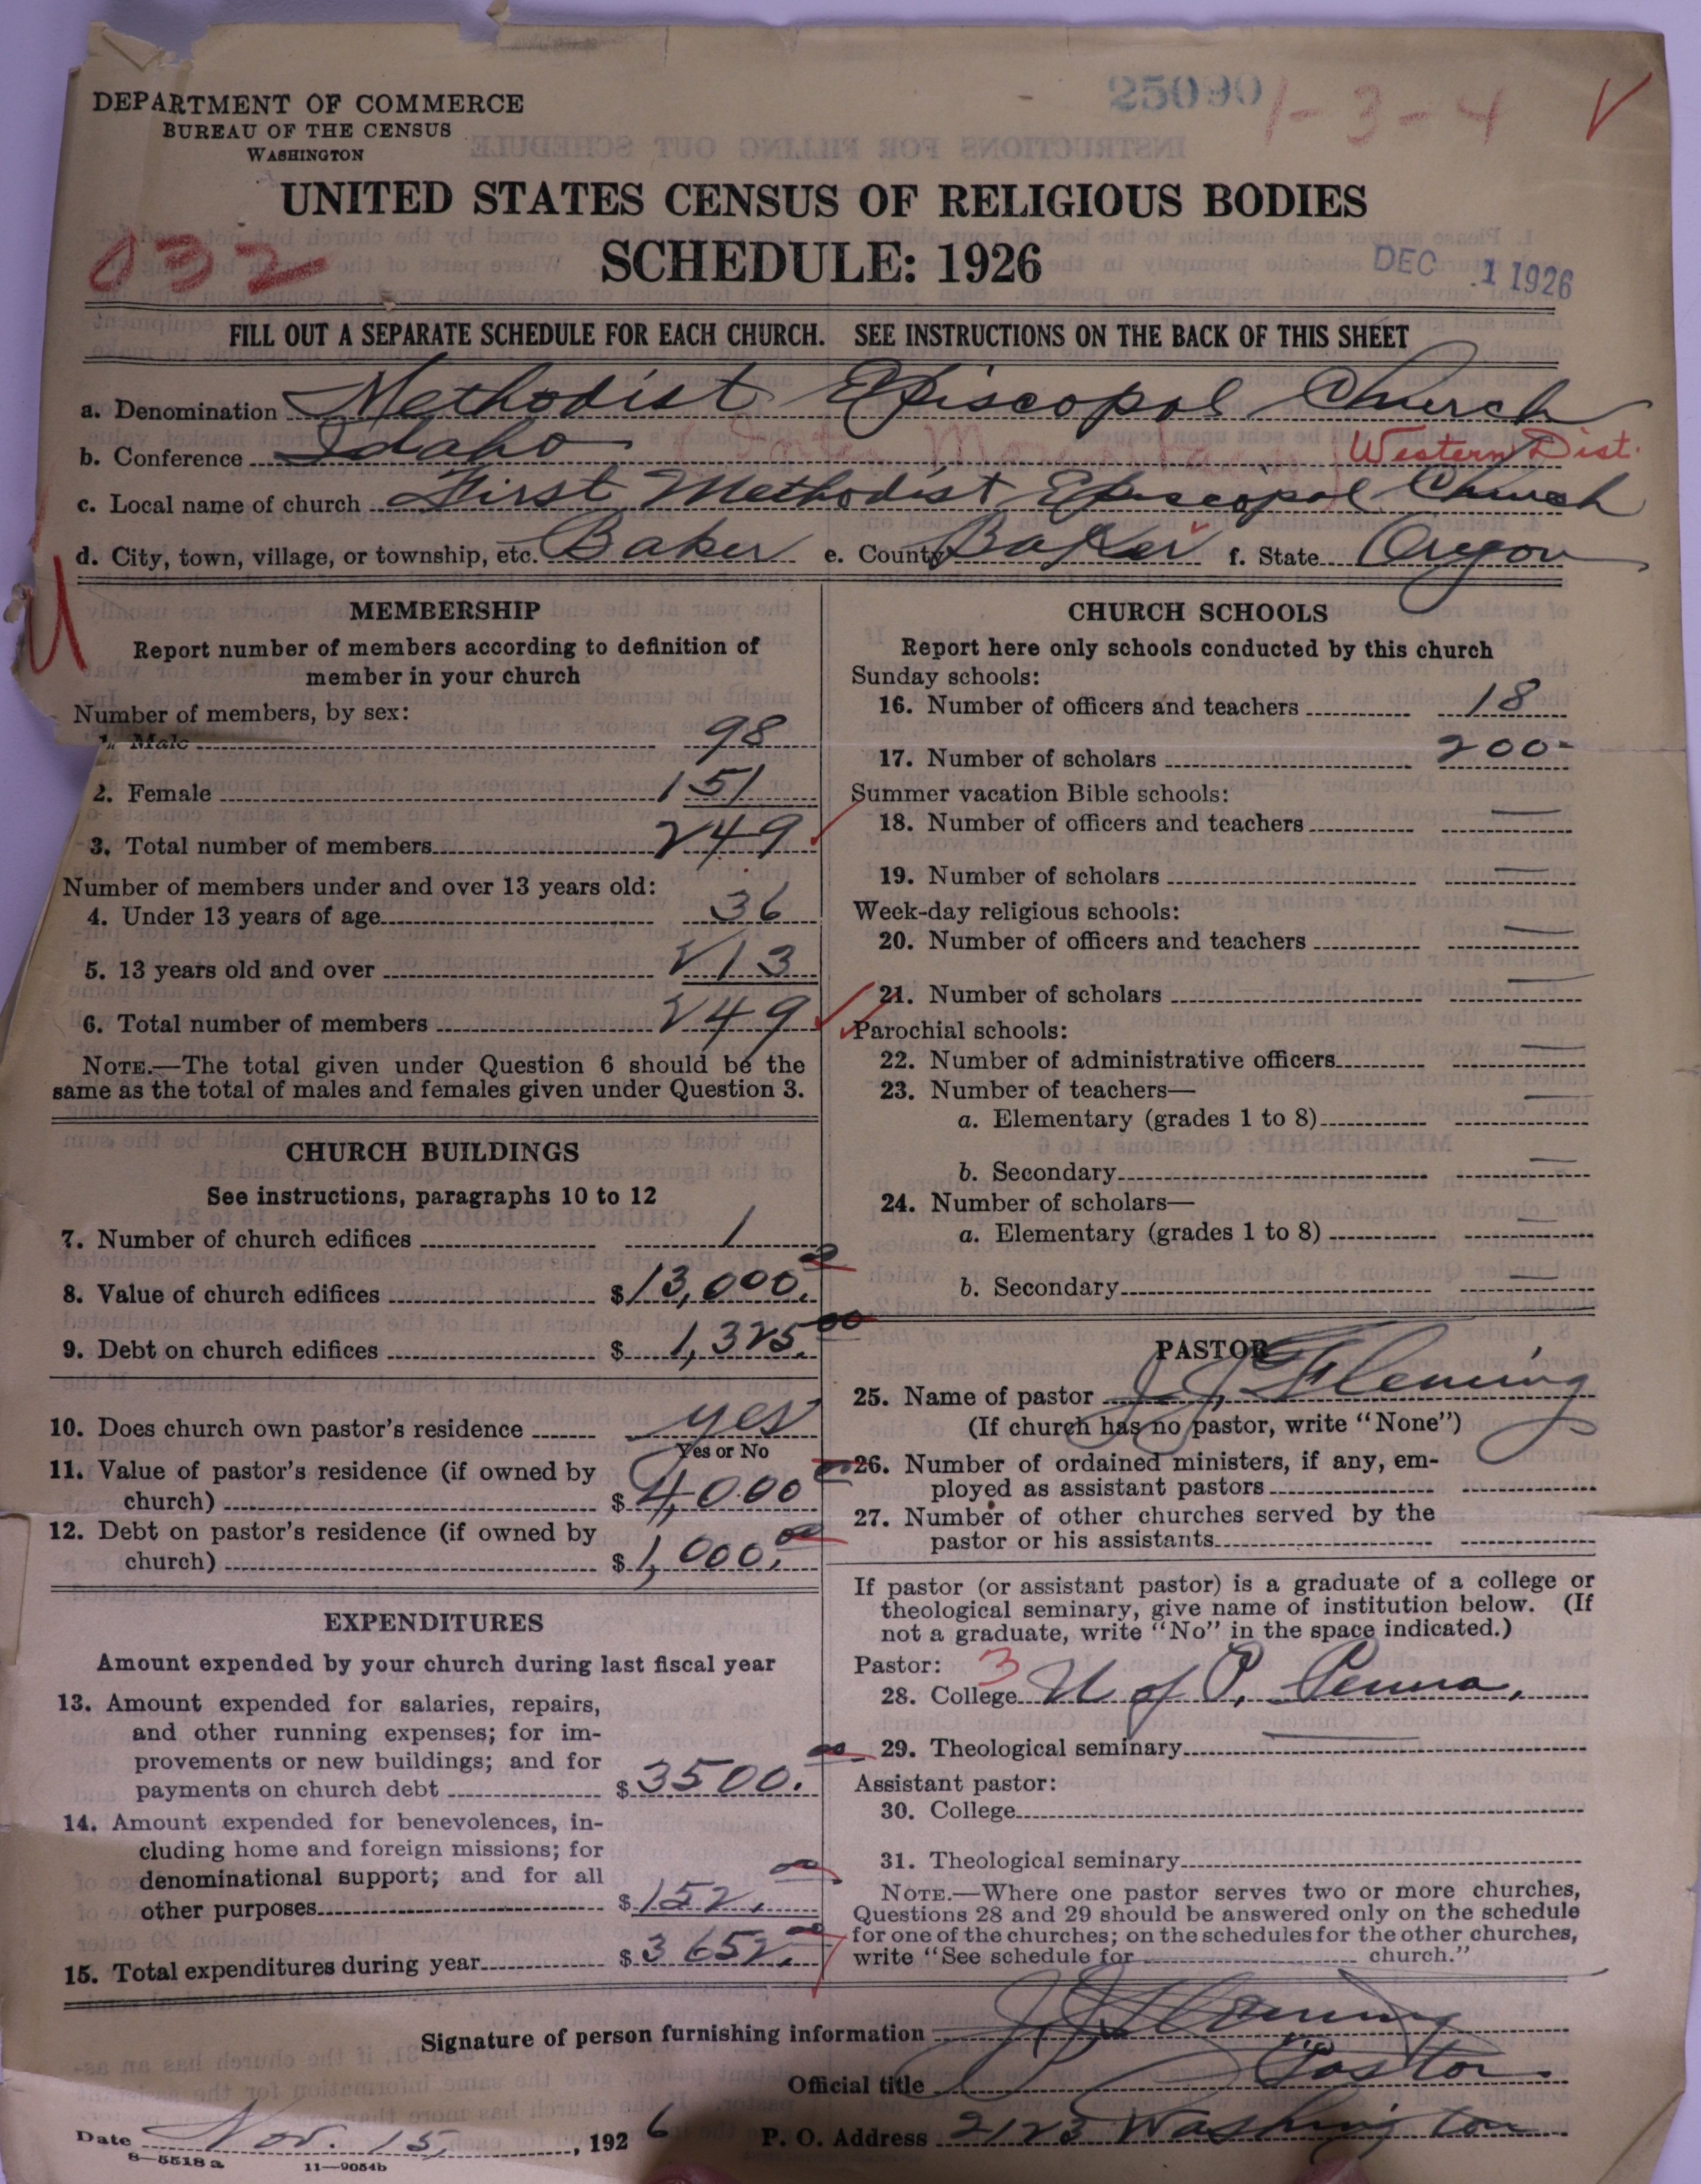 DEPARTMENT OF COMMERCE
BUREAU OF THE CENSUS
WASHINGTON
25090
1-3-4
UNITED STATES CENSUS OF RELIGIOUS BODIES
SCHEDULE: 1926
932
DEC 1 1926
FILL OUT A SEPARATE SCHEDULE FOR EACH CHURCH. SEE INSTRUCTIONS ON THE BACK OF THIS SHEET
a. Denomination Methodist Episcopal Church
b. Conference Idaho (Inter Mountain) Western Dist.
c. Local name of church First Methodist Episcopal Church
d. City, town, village, or township, etc. Baker e. County Baker f. State Oregon
MEMBERSHIP
Report number of members according to definition of
member in your church
Number of members, by sex:
1. Male 98
2. Female 151
3. Total number of members 249
Number of members under and over 13 years old:
4. Under 13 years of age 36
5. 13 years old and over 213
6. Total number of members 249
NOTE.—The total given under Question 6 should be the
same as the total of males and females given under Question 3.
CHURCH BUILDINGS
See instructions, paragraphs 10 to 12
7. Number of church edifices 1
8. Value of church edifices $13,000.00
9. Debt on church edifices $1,325.00
10. Does church own pastor's residence yes
Yes or No
11. Value of pastor's residence (if owned by
church) $4,000 00
12. Debt on pastor's residence (if owned by
church) $1,000.00
EXPENDITURES
Amount expended by your church during last fiscal year
13. Amount expended for salaries, repairs,
and other running expenses; for im-
provements or new buildings; and for
payments on church debt $3500.00
14. Amount expended for benevolences, in-
cluding home and foreign missions; for
denominational support; and for all
other purposes $152.00
15. Total expenditures during year $3652.00
CHURCH SCHOOLS
Report here only schools conducted by this church
Sunday schools:
16. Number of officers and teachers 18
17. Number of scholars 200-
Summer vacation Bible schools:
18. Number of officers and teachers —
19. Number of scholars —
Week-day religious schools:
20. Number of officers and teachers —
21. Number of scholars —
Parochial schools:
22. Number of administrative officers —
23. Number of teachers—
a. Elementary (grades 1 to 8) —
b. Secondary —
24. Number of scholars—
a. Elementary (grades 1 to 8) —
b. Secondary —
PASTOR
25. Name of pastor J J Fleming
(If church has no pastor, write "None")
26. Number of ordained ministers, if any, em-
ployed as assistant pastors
27. Number of other churches served by the
pastor or his assistants
If pastor (or assistant pastor) is a graduate of a college or
theological seminary, give name of institution below. (If
not a graduate, write "No" in the space indicated.)
Pastor: 3
28. College U of P, Penna,
29. Theological seminary —
Assistant pastor:
30. College
31. Theological seminary
NOTE.—Where one pastor serves two or more churches,
Questions 28 and 29 should be answered only on the schedule
for one of the churches; on the schedules for the other churches,
write "See schedule for church."
Signature of person furnishing information J J Fleming
Official title Pastor.
Date Nov. 15, 1926 P. O. Address 2123 Washington
8-5518a 11-9054b